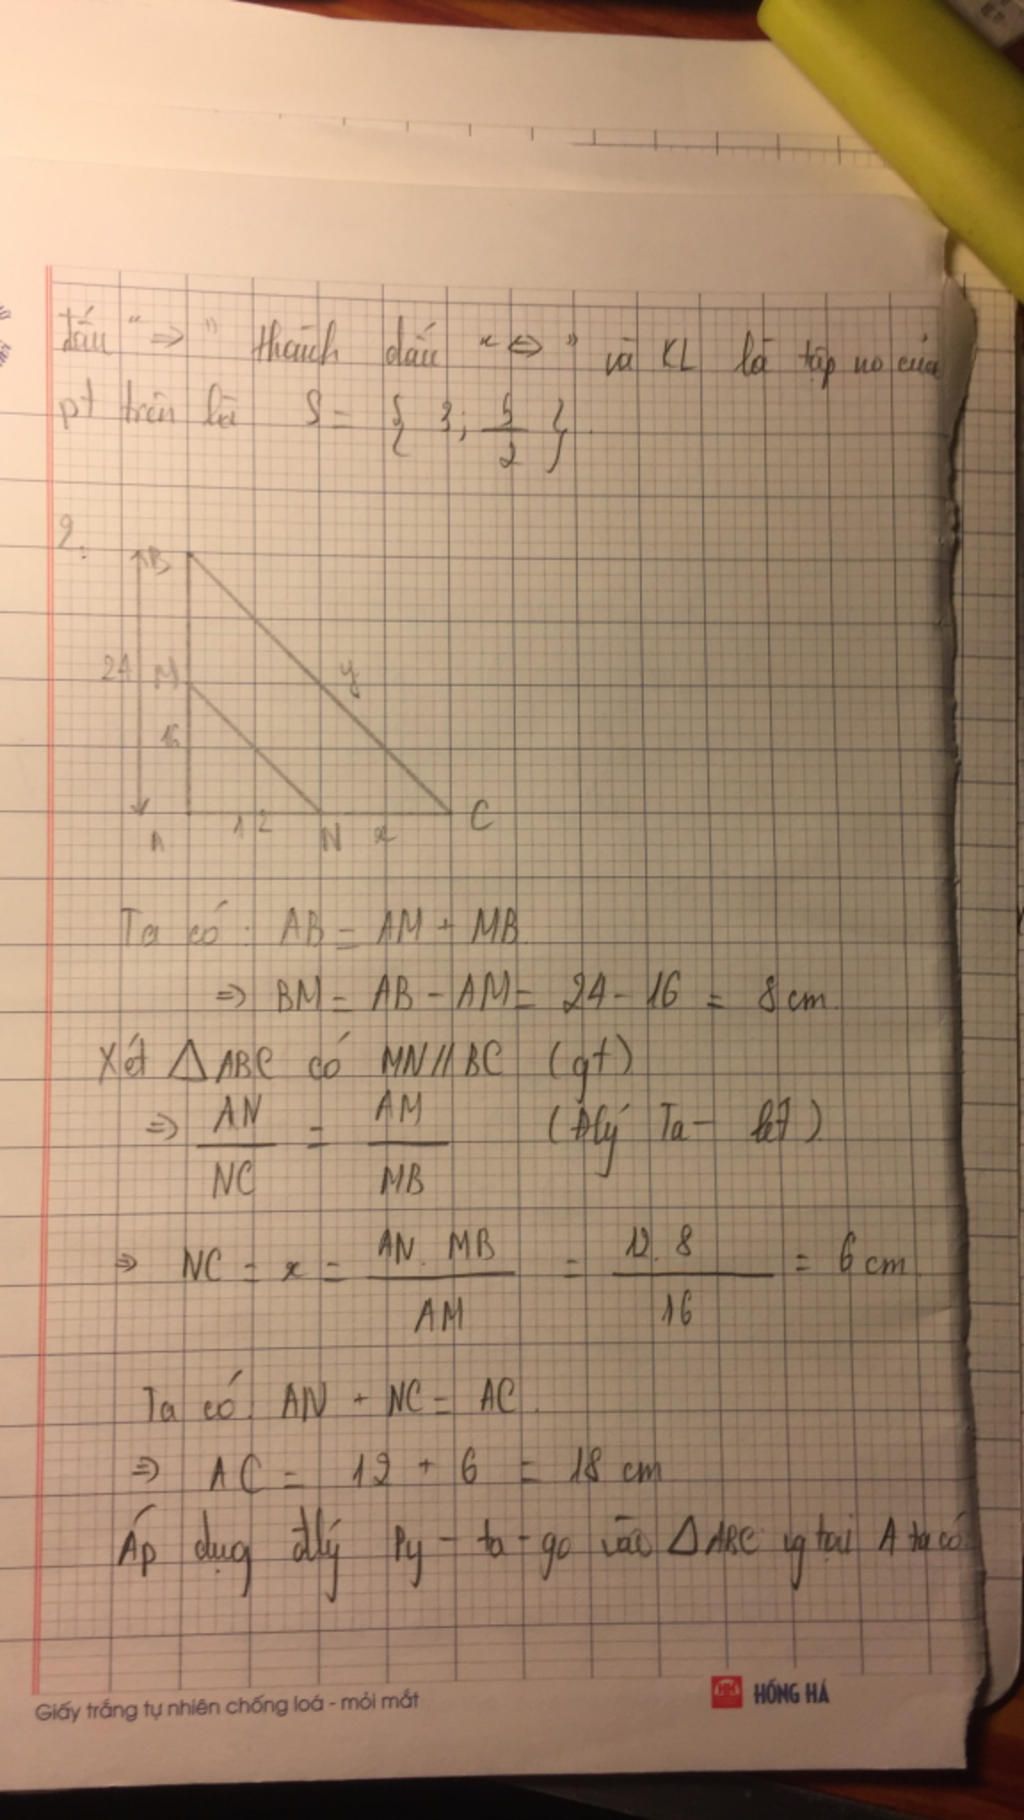 dấu "=>" thành dấu "<=>" và KL là tập no của
pt trên là S = { 3; 5/2 }
2.
B
24
M
y
16
A
12
N
x
C
Ta có: AB = AM + MB
=> BM = AB - AM = 24 - 16 = 8 cm.
Xét △ABC có MN // BC (gt)
=> AN/NC = AM/MB (Đlý Ta - let)
=> NC = x = AN. MB/AM = 12. 8/16 = 6 cm
Ta có AN + NC = AC.
=> AC = 12 + 6 = 18 cm
Áp dụng đlý Py - ta - go vào △ABC vg tại A ta có
Giấy trắng tự nhiên chống loá - mỏi mắt
HH HỒNG HÀ